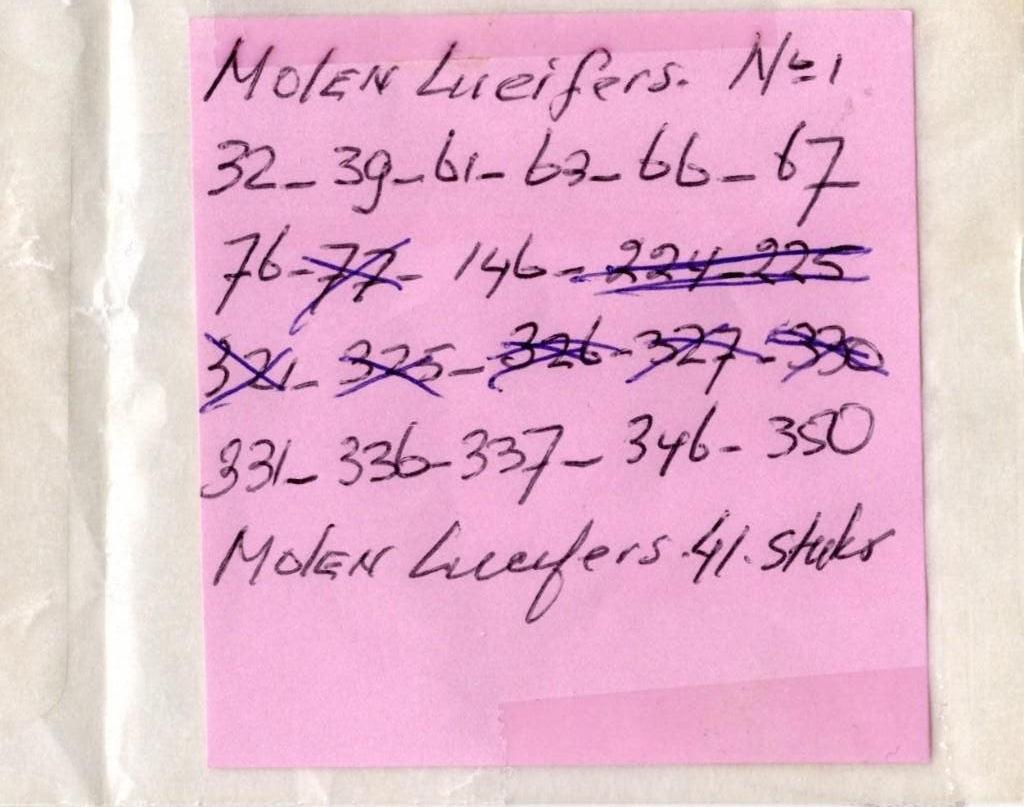 MOLEN Lucifers. Nº 1
32 - 39 - 61 - 63 - 66 - 67
76 - 77 - 146 - 224 - 225
321 - 325 - 326 - 327 - 330
331 - 336 - 337 - 346 - 350
MOLEN Lucifers. 41. stuks